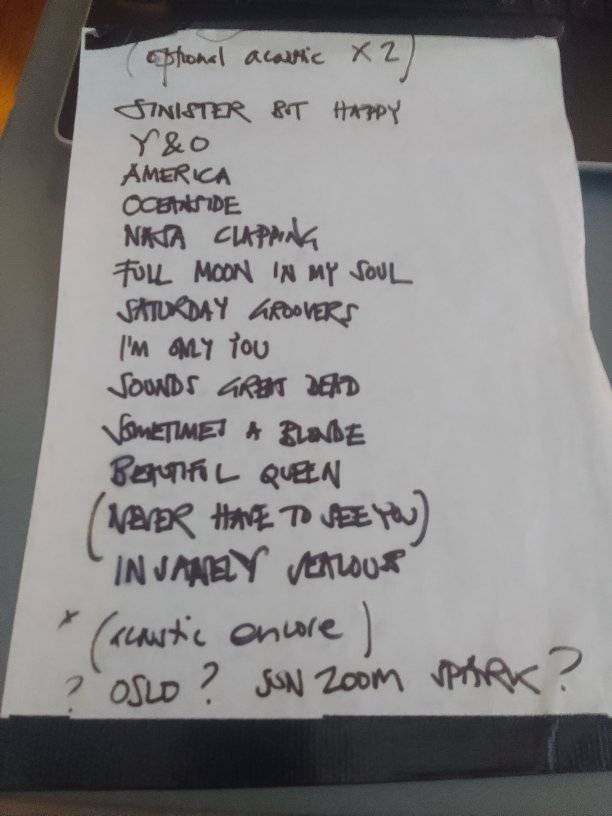 (optional acoustic X2)
SINISTER BUT HAPPY
Y&O
AMERICA
OCEANSIDE
NASA CLAPPING
FULL MOON IN MY SOUL
SATURDAY GROOVERS
I'M ONLY YOU
SOUNDS GREAT DEAD
SOMETIMES A BLONDE
BEAUTIFUL QUEEN
(NEVER HAVE TO SEE YOU)
INSANELY JEALOUS
x (acoustic encore)
? OSLO? SUN ZOOM SPARK?